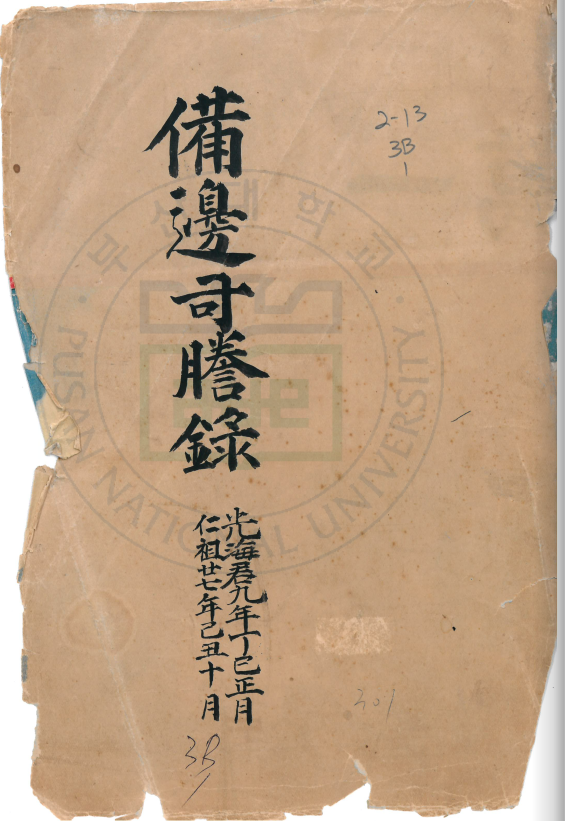 備邊司謄錄
光海君九年丁巳正月
仁祖廿七年己丑十月
2-13
3B
1
3B
301
부산대학교
PUSAN NATIONAL UNIVERSITY